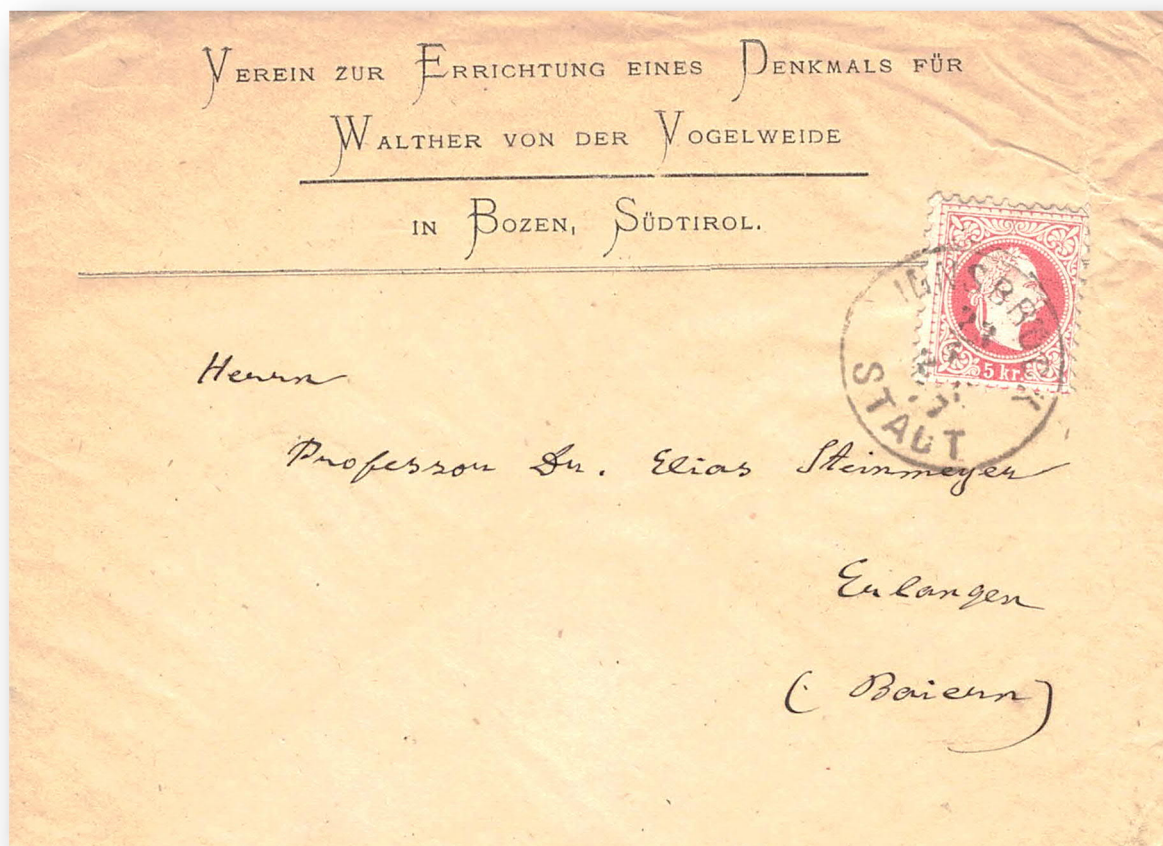 VEREIN ZUR ERRICHTUNG EINES DENKMALS FÜR
WALTHER VON DER VOGELWEIDE
IN BOZEN, SÜDTIROL.
INNSBRUCK
STADT
5 kr.
Herrn
Professor Dr. Elias Steinmeyer
Erlangen
(Baiern)